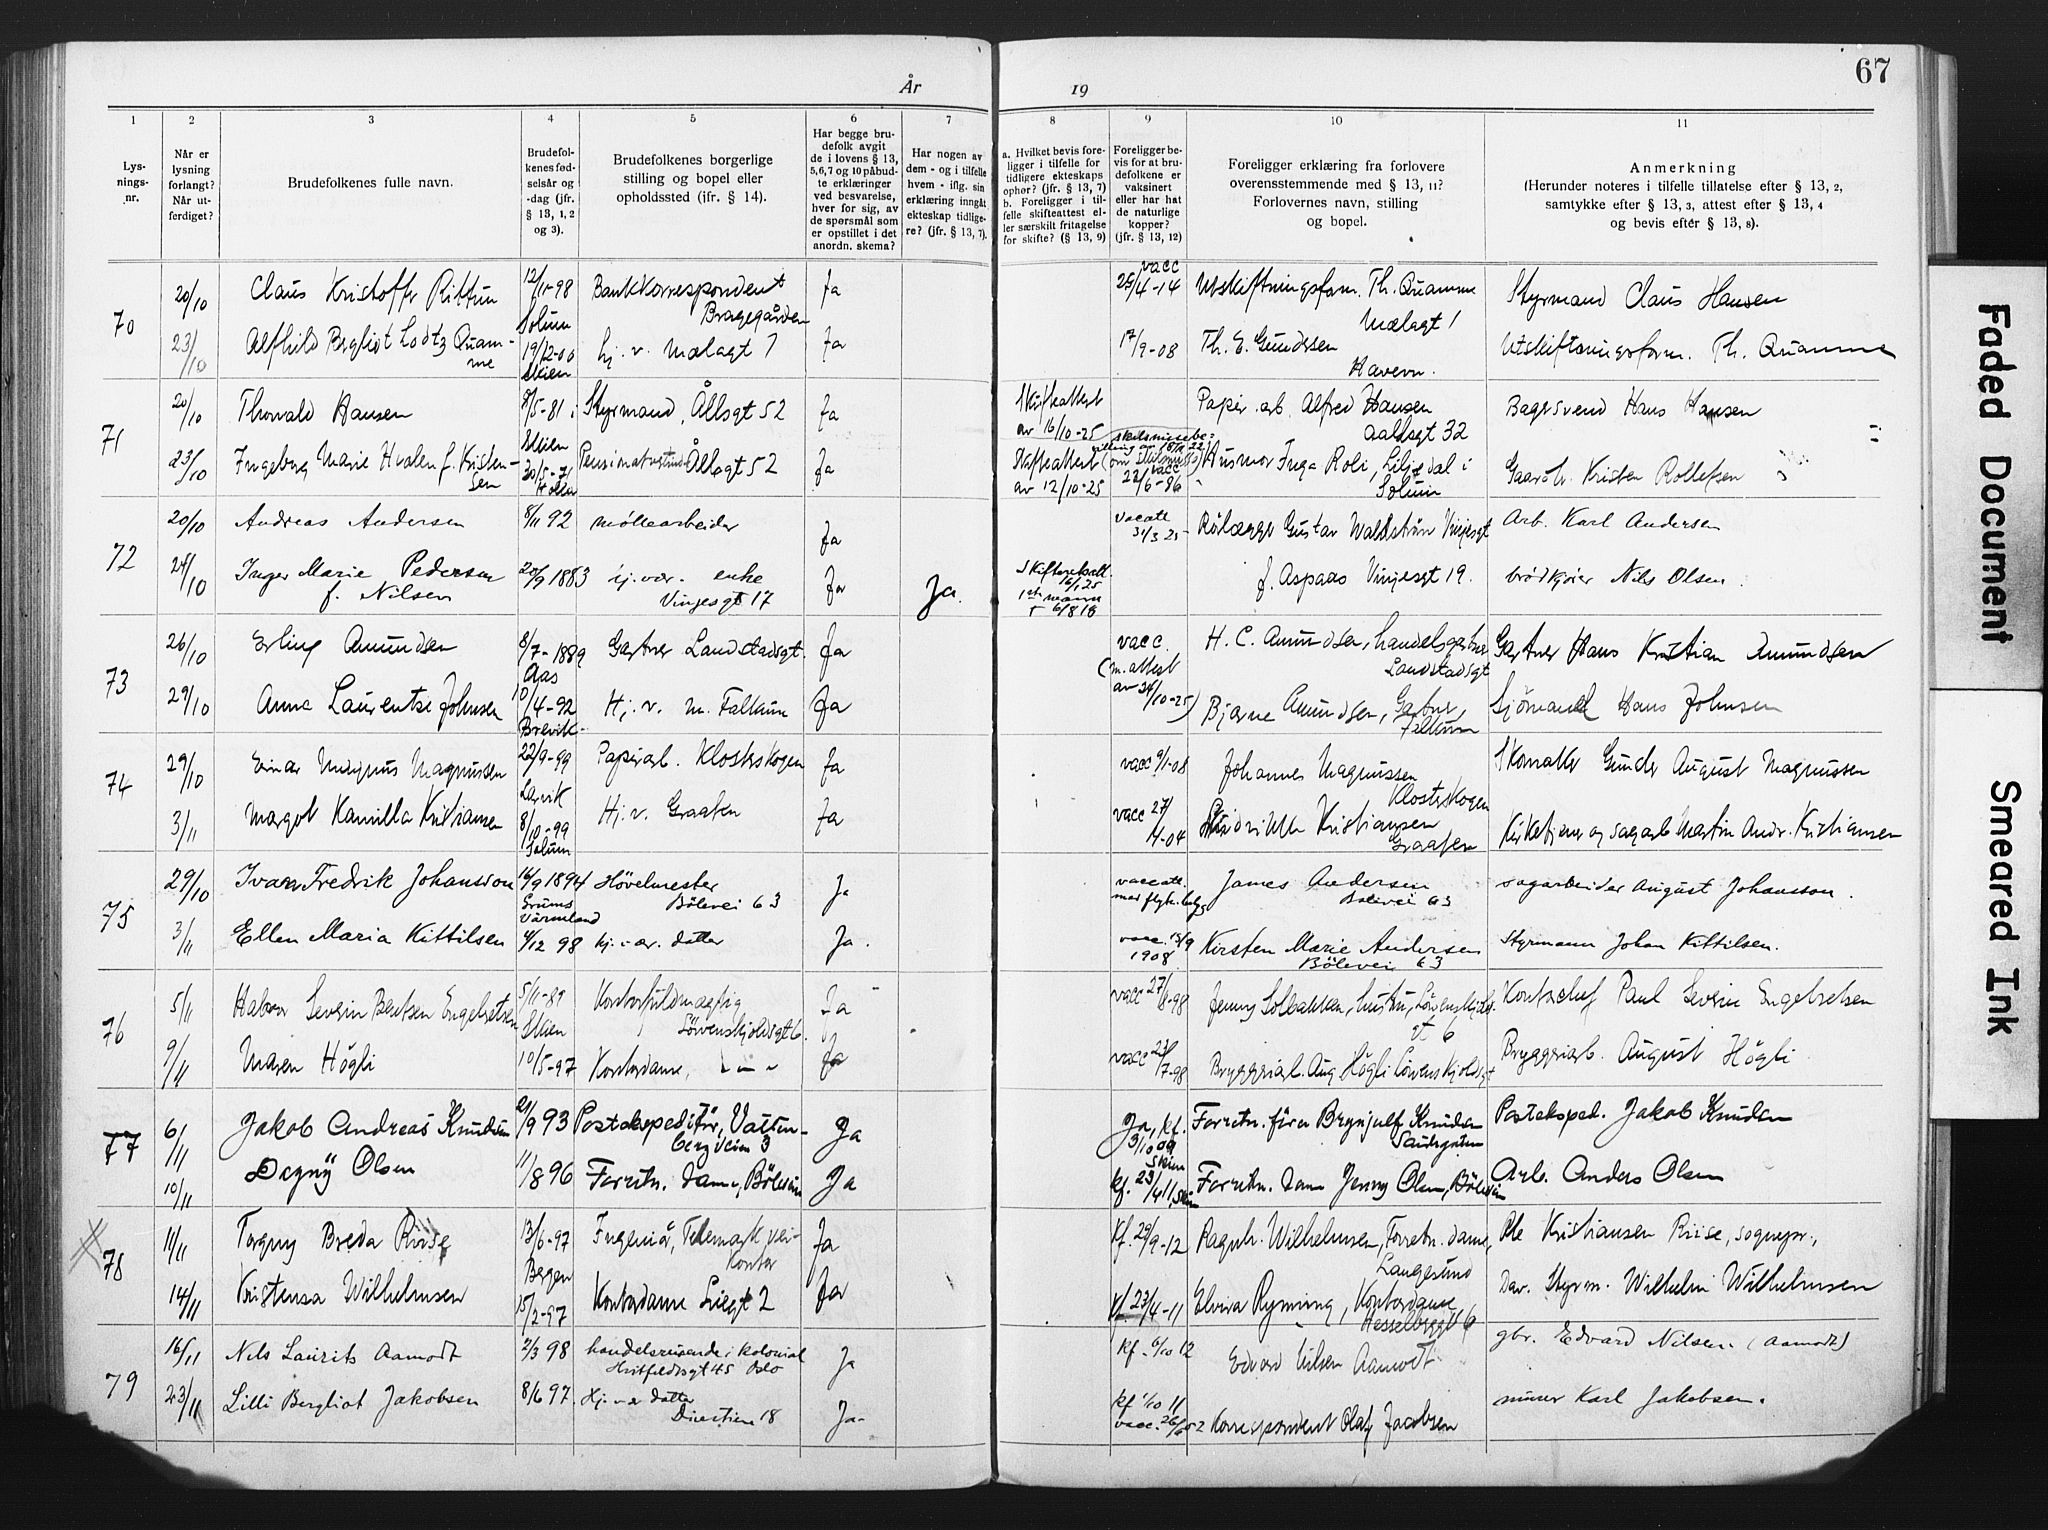 67
År 19
1 2 3 4 5 6 7 8 9 10 11
Lys-
nings-
nr.
Når er
lysning
forlangt?
Når ut-
ferdiget?
Brudefolkenes fulle navn.
Brudefol-
kenes fød-
selsår og
-dag (jfr.
§ 13, 1, 2
og 3).
Brudefolkenes borgerlige
stilling og bopel eller
opholdssted (ifr. § 14).
Har begge bru-
defolk avgit
de i lovens § 13,
5,6,7 og 10 påbud-
te erklæringer
ved besvarelse,
hver for sig, av
de spørsmål som
er opstillet i det
anordn. skema?
Har nogen av
dem - og i tilfelle
hvem - iflg. sin
erklæring inngåt
ekteskap tidlige-
re? (jfr. § 13, 7).
a. Hvilket bevis fore-
ligger i tilfelle for
tidligere ekteskaps
ophør? (jfr. § 13, 7)
b. Foreligger i til-
felle skifteattest el-
ler særskilt fritagelse
for skifte? (§ 13, 9)
Foreligger be-
vis for at bru-
defolkene er
vaksinert
eller har hat
de naturlige
kopper?
(jfr. § 13, 12)
Foreligger erklæring fra forlovere
overensstemmende med § 13, 11?
Forlovernes navn, stilling
og bopel.
Anmerkning
(Herunder noteres i tilfelle tillatelse efter § 13, 2,
samtykke efter § 13, 3, attest efter § 13, 4
og bevis eftér § 13, 8).
70
20/10 Claus Kristoffer 12/11-98 Bankkorrespondent Ja vacc 25/4-14 Utskiftningsform. Th. Quamme Styrmand Claus Hansen
Solum Bragegården Mælagt 1
23/10 Alfhild Bergliot Lodtz Quam- 19/12-00 hj. v. Mælagt 7 Ja 17/9-08 Th. E. Gundersen Utskiftningsform. Th. Quamme
me Skien
71
20/10 Thorvald Hansen 8/5-81 Styrmand, Ållsgt 52 Ja Skifteattest Papir. arb. Alfred Hansen Bagersvend Hans Hansen
Skien av 16/10-25 aallsgt 32
23/10 Ingeborg Marie Hvalen f. Kristen- 30/5-71 Ållsgt 52 Ja Skifteattest Husmor Inga Roli, Liljedal i Gaardbr. Kristen Rollefsen
sen Holla av 12/10-25 vacc 22/6-86 Solum
72
20/10 Andreas Andersen 8/11 92 møllearbeider Ja Vacatt. Rörlægger Gustav Waldström Vinjesgt Arb. Karl Andersen
24/10 Inger Marie Pedersen 20/9 1883 hj. vær. enke Ja Ja. Skifteatt. f. Aspaas Vinjesgt 19. brödkjører Nils Olsen.
f. Nilsen Vinjesgt 17 16/1 25
1ste mann
† 6/8 18
73
26/10 Erling Amundsen 8/7-1889 Gartner Landstadsgt. Ja vacc. H. C. Amundsen, handelsgartner Gartner Hans Kristian Amundsen
Aas (m. attest Landstadsgt
29/10 Anna Laurentse Johnsen 10/4-92 Hj. v. m. Falkum Ja av 24/10-25) Bjarne Amundsen, Gartner, Sjömand Hans Johnsen
Brevik Falkum
74
29/10 Einar Magnus Magnussen 22/9-99 Papirarb. Klosterskogen Ja vacc 9/1-08 Johannes Magnussen Skomaker Gunder August Magnussen
Larvik Klosterskogen
3/11 Margot Kamilla Kristiansen 8/10-99 Hj. v. Graaten Ja vacc 27/4-04 Kristiansen Kirketjener og sagarb Martin Andr. Kristiansen
Solum Graaten
75
29/10 Ivar Fredrik Johansson 16/9 1894 Hövelmester Ja vaccatt. James Andersen sagarbeider August Johansson.
Grums Bölevei 63 Bölevei 63
Värmland
3/11 Ellen Maria Kittilsen 4/12 98 hj. vær. datter Ja. vacc. 15/9 Kirsten Marie Andersen Styrmann Johan Kittilsen.
1908 Bölevei 63
76
5/11 Halvor Severin Bentsen Engebretsen 5/11-89 Kontorfuldmægtig Ja vacc 27/8-98 Jenny Solbakken, hustru, Lövenskjolds- Kontorchef Paul Severin Engebretsen
Skien Lövenskjoldsgt 6. gt 6
9/11 Maren Högli 10/5-97 Kontordame, Ja vacc 23/7-98 Bryggeriarb. Aug Högli Lövenskjoldsgt Bryggeriarb. August Högli
77
6/11 Jakob Andreas Knudsen 21/9 93 Postekspeditör, Ja Ja, kf. Forretn. förer Brynjulf Knudsen Posteksped. Jakob Knudsen
3/10 09
Skien
10/11 Dagny Olsen 11/8 96 Forretn. dame, Böleveien Ja kf. 23/4 11, Skien Forretn. dame Jenny Olsen, Böleveien Arb. Anders Olsen
78
11/11 Torguny Breda Riise 13/6-97 Ingeniør, Telemark vei- Ja Kf. 29/9-12 Ragnh. Wilhelmsen, Forretn. dame, Ole Kristiansen Riise, sognepr.,
Bergen kontor Langesund
14/11 Kristensa Wilhelmsen 15/2-97 Kontordame Liegt 2 Ja Kf. 23/4-11 Elvira Ryning, Kontordame Dav. Styrm. Wilhelm Wilhelmsen
Hesselbergsgt 6
79
16/11 Nils Laurits Aamodt 2/3 98 handelsreisende i kolonial Ja kf. 6/10 12 Edvard Nilsen Aamodt gbr. Edvard Nilsen (Aamodt)
Huitfeldtsgt 45 Oslo
23/11 Lilli Bergliot Jakobsen 8/6 97 Hj. v. datter Ja kf 1/10 11 murer Karl Jakobsen.
18 vacc. 26/6 02 Korrespondent Olaf Jacobsen
Faded Document
Smeared Ink